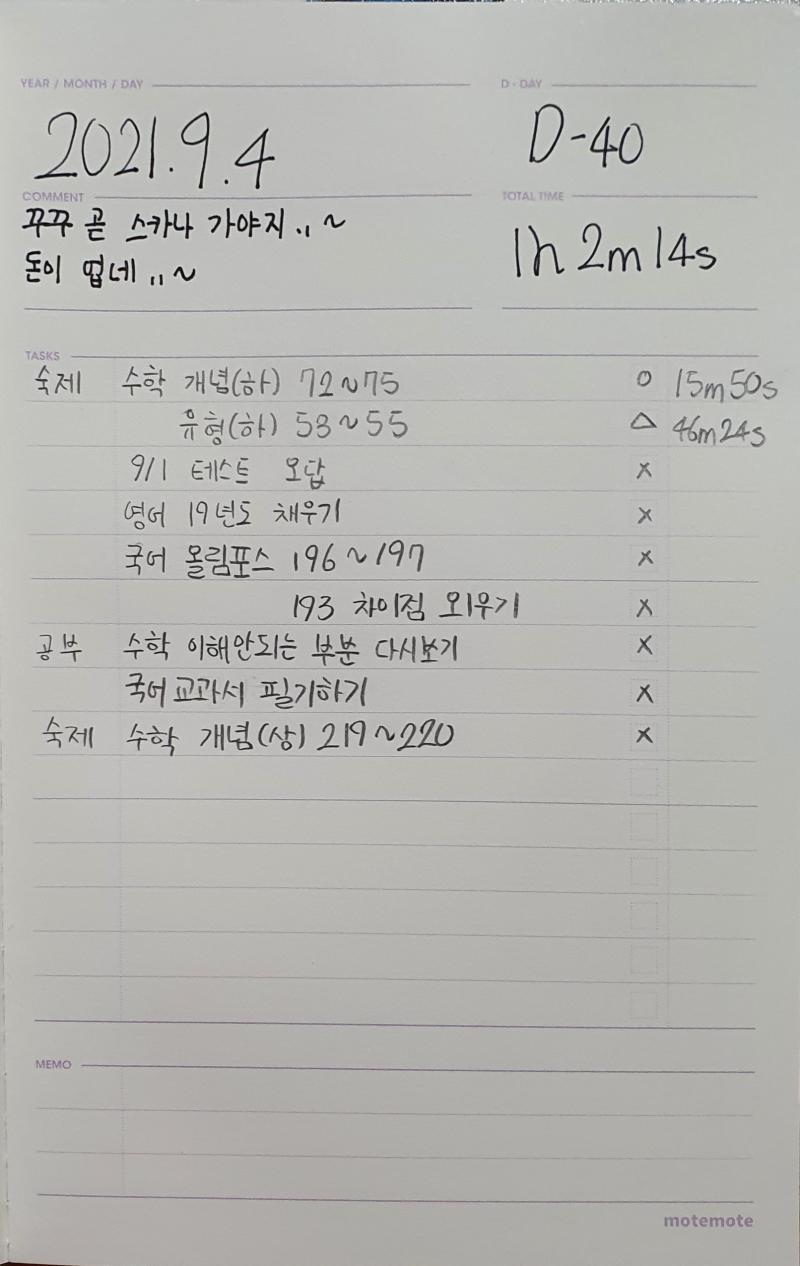 YEAR / MONTH / DAY
D-DAY
2021.9.4
D-40
COMMENT
TOTAL TIME
꾸꾸 곧 스카나 가야지..~
돈이 떱네..~
1h 2m 14s
TASKS
숙제 수학 개념(하) 72~75 O 15m50s
유형(하) 53~55 △ 46m24s
9/1 테스트 오답 x
영어 19년도 채우기 x
국어 올림포스 196~197 x
193 차이점 외우기 x
공부 수학 이해안되는 부분 다시보기 x
국어교과서 필기하기 x
숙제 수학 개념(상) 219~220 x
MEMO
motemote